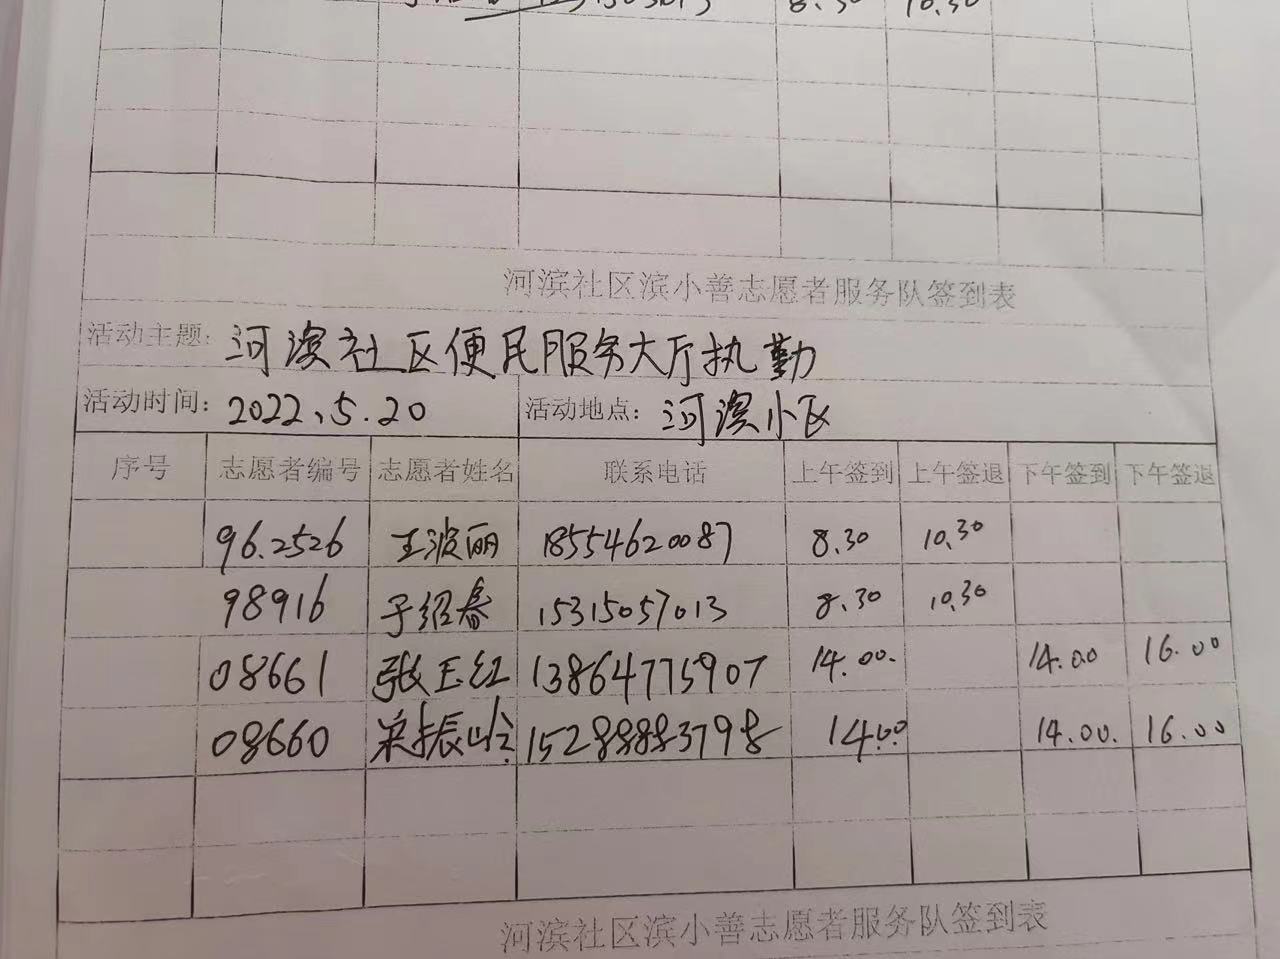 8.30 10.30
河滨社区滨小善志愿者服务队签到表
活动主题: 河滨社区便民服务大厅执勤
活动时间: 2022.5.20 活动地点: 河滨小区
序号 志愿者编号 志愿者姓名 联系电话 上午签到 上午签退 下午签到 下午签退
96.2526 王波丽 18554620087 8.30 10.30
98916 于绍春 15315057013 8.30 10.30
08661 张玉红 13864775907 14.00. 14.00 16.00
08660 栄振岭 15288883798 14.00 14.00. 16.00
河滨社区滨小善志愿者服务队签到表